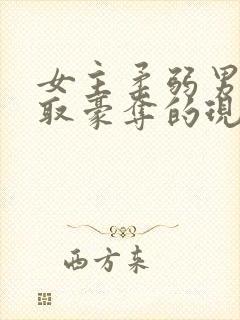 女主柔弱男
取豪夺的现
西方来